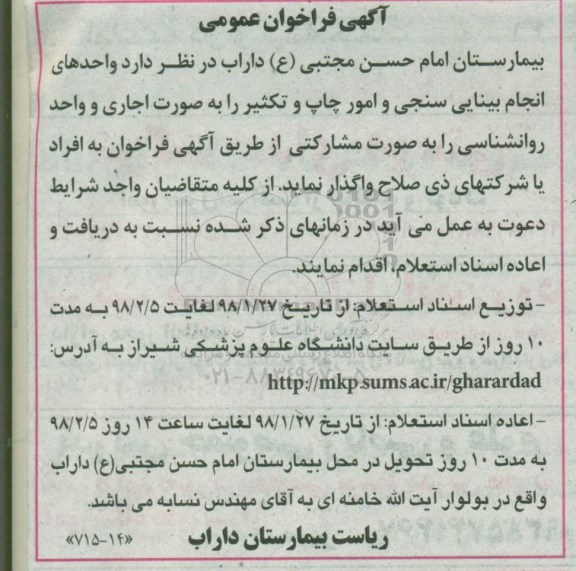 آگهی فراخوان عمومی
بیمارستان امام حسن مجتبی (ع) داراب در نظر دارد واحدهای
انجام بینایی سنجی و امور چاپ و تکثیر را به صورت اجاری و واحد
روانشناسی را به صورت مشارکتی از طریق آگهی فراخوان به افراد
یا شرکتهای ذی صلاح واگذار نماید. از کلیه متقاضیان واجد شرایط
دعوت به عمل می آید در زمانهای ذکر شده نسبت به دریافت و
اعاده اسناد استعلام، اقدام نمایند.
- توزیع اسناد استعلام: از تاریخ ۹۸/۱/۲۷ لغایت ۹۸/۲/۵ به مدت
۱۰ روز از طریق سایت دانشگاه علوم پزشکی شیراز به آدرس:
http://mkp.sums.ac.ir/gharardad
- اعاده اسناد استعلام: از تاریخ ۹۸/۱/۲۷ لغایت ساعت ۱۴ روز ۹۸/۲/۵
به مدت ۱۰ روز تحویل در محل بیمارستان امام حسن مجتبی(ع) داراب
واقع در بولوار آیت الله خامنه ای به آقای مهندس نسابه می باشد.
ریاست بیمارستان داراب
«۷۱۵-۱۴»